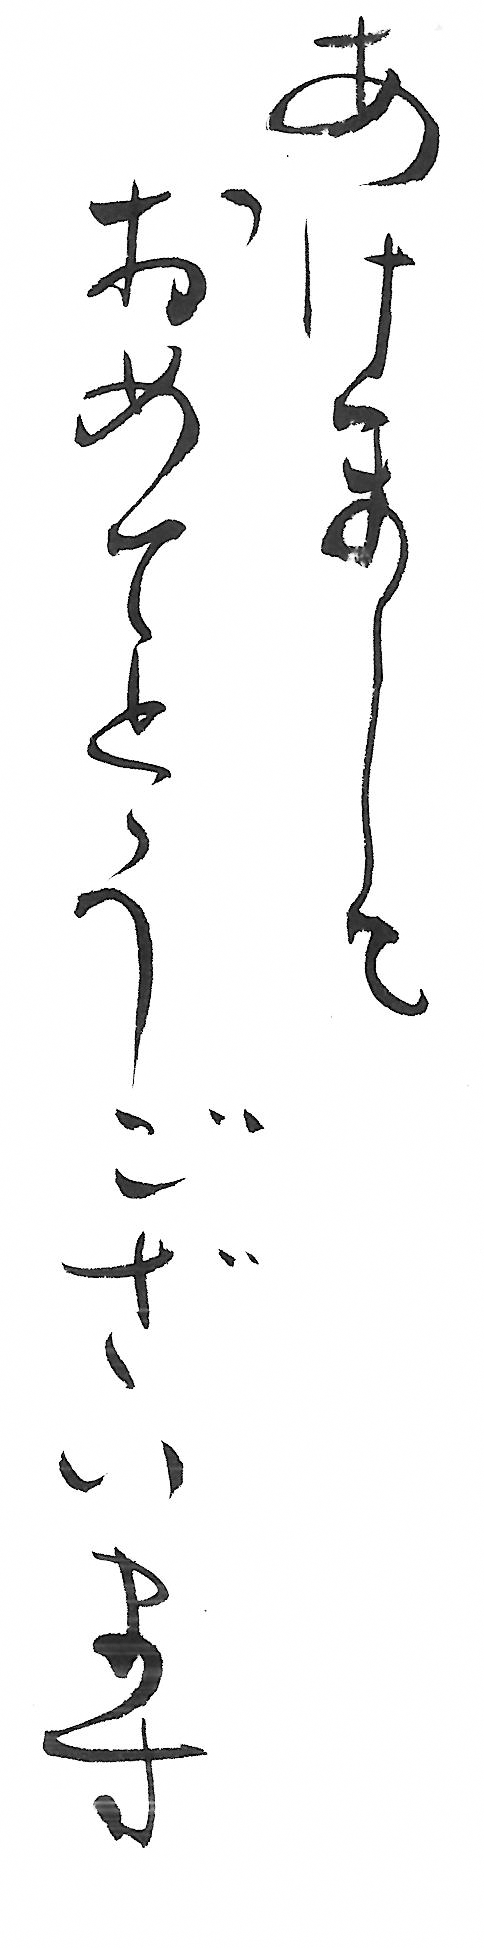 あけまして
おめてとうございます